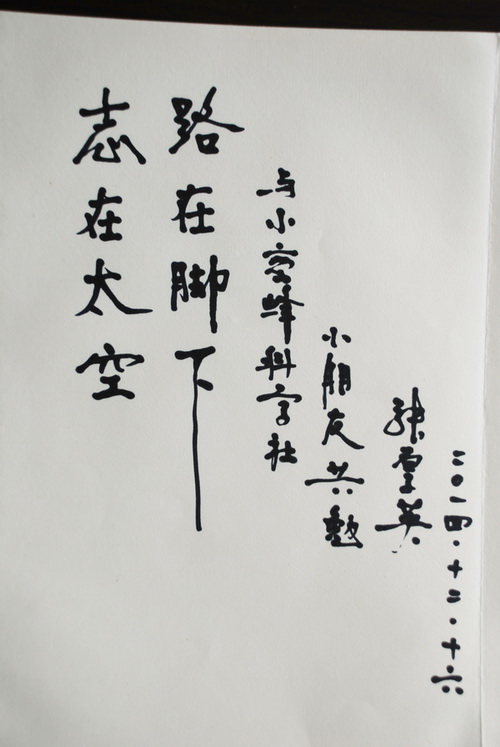 志在太空
路在脚下
与小蜜蜂科学社
小朋友共勉
张厚英
二〇一四·十二·十六